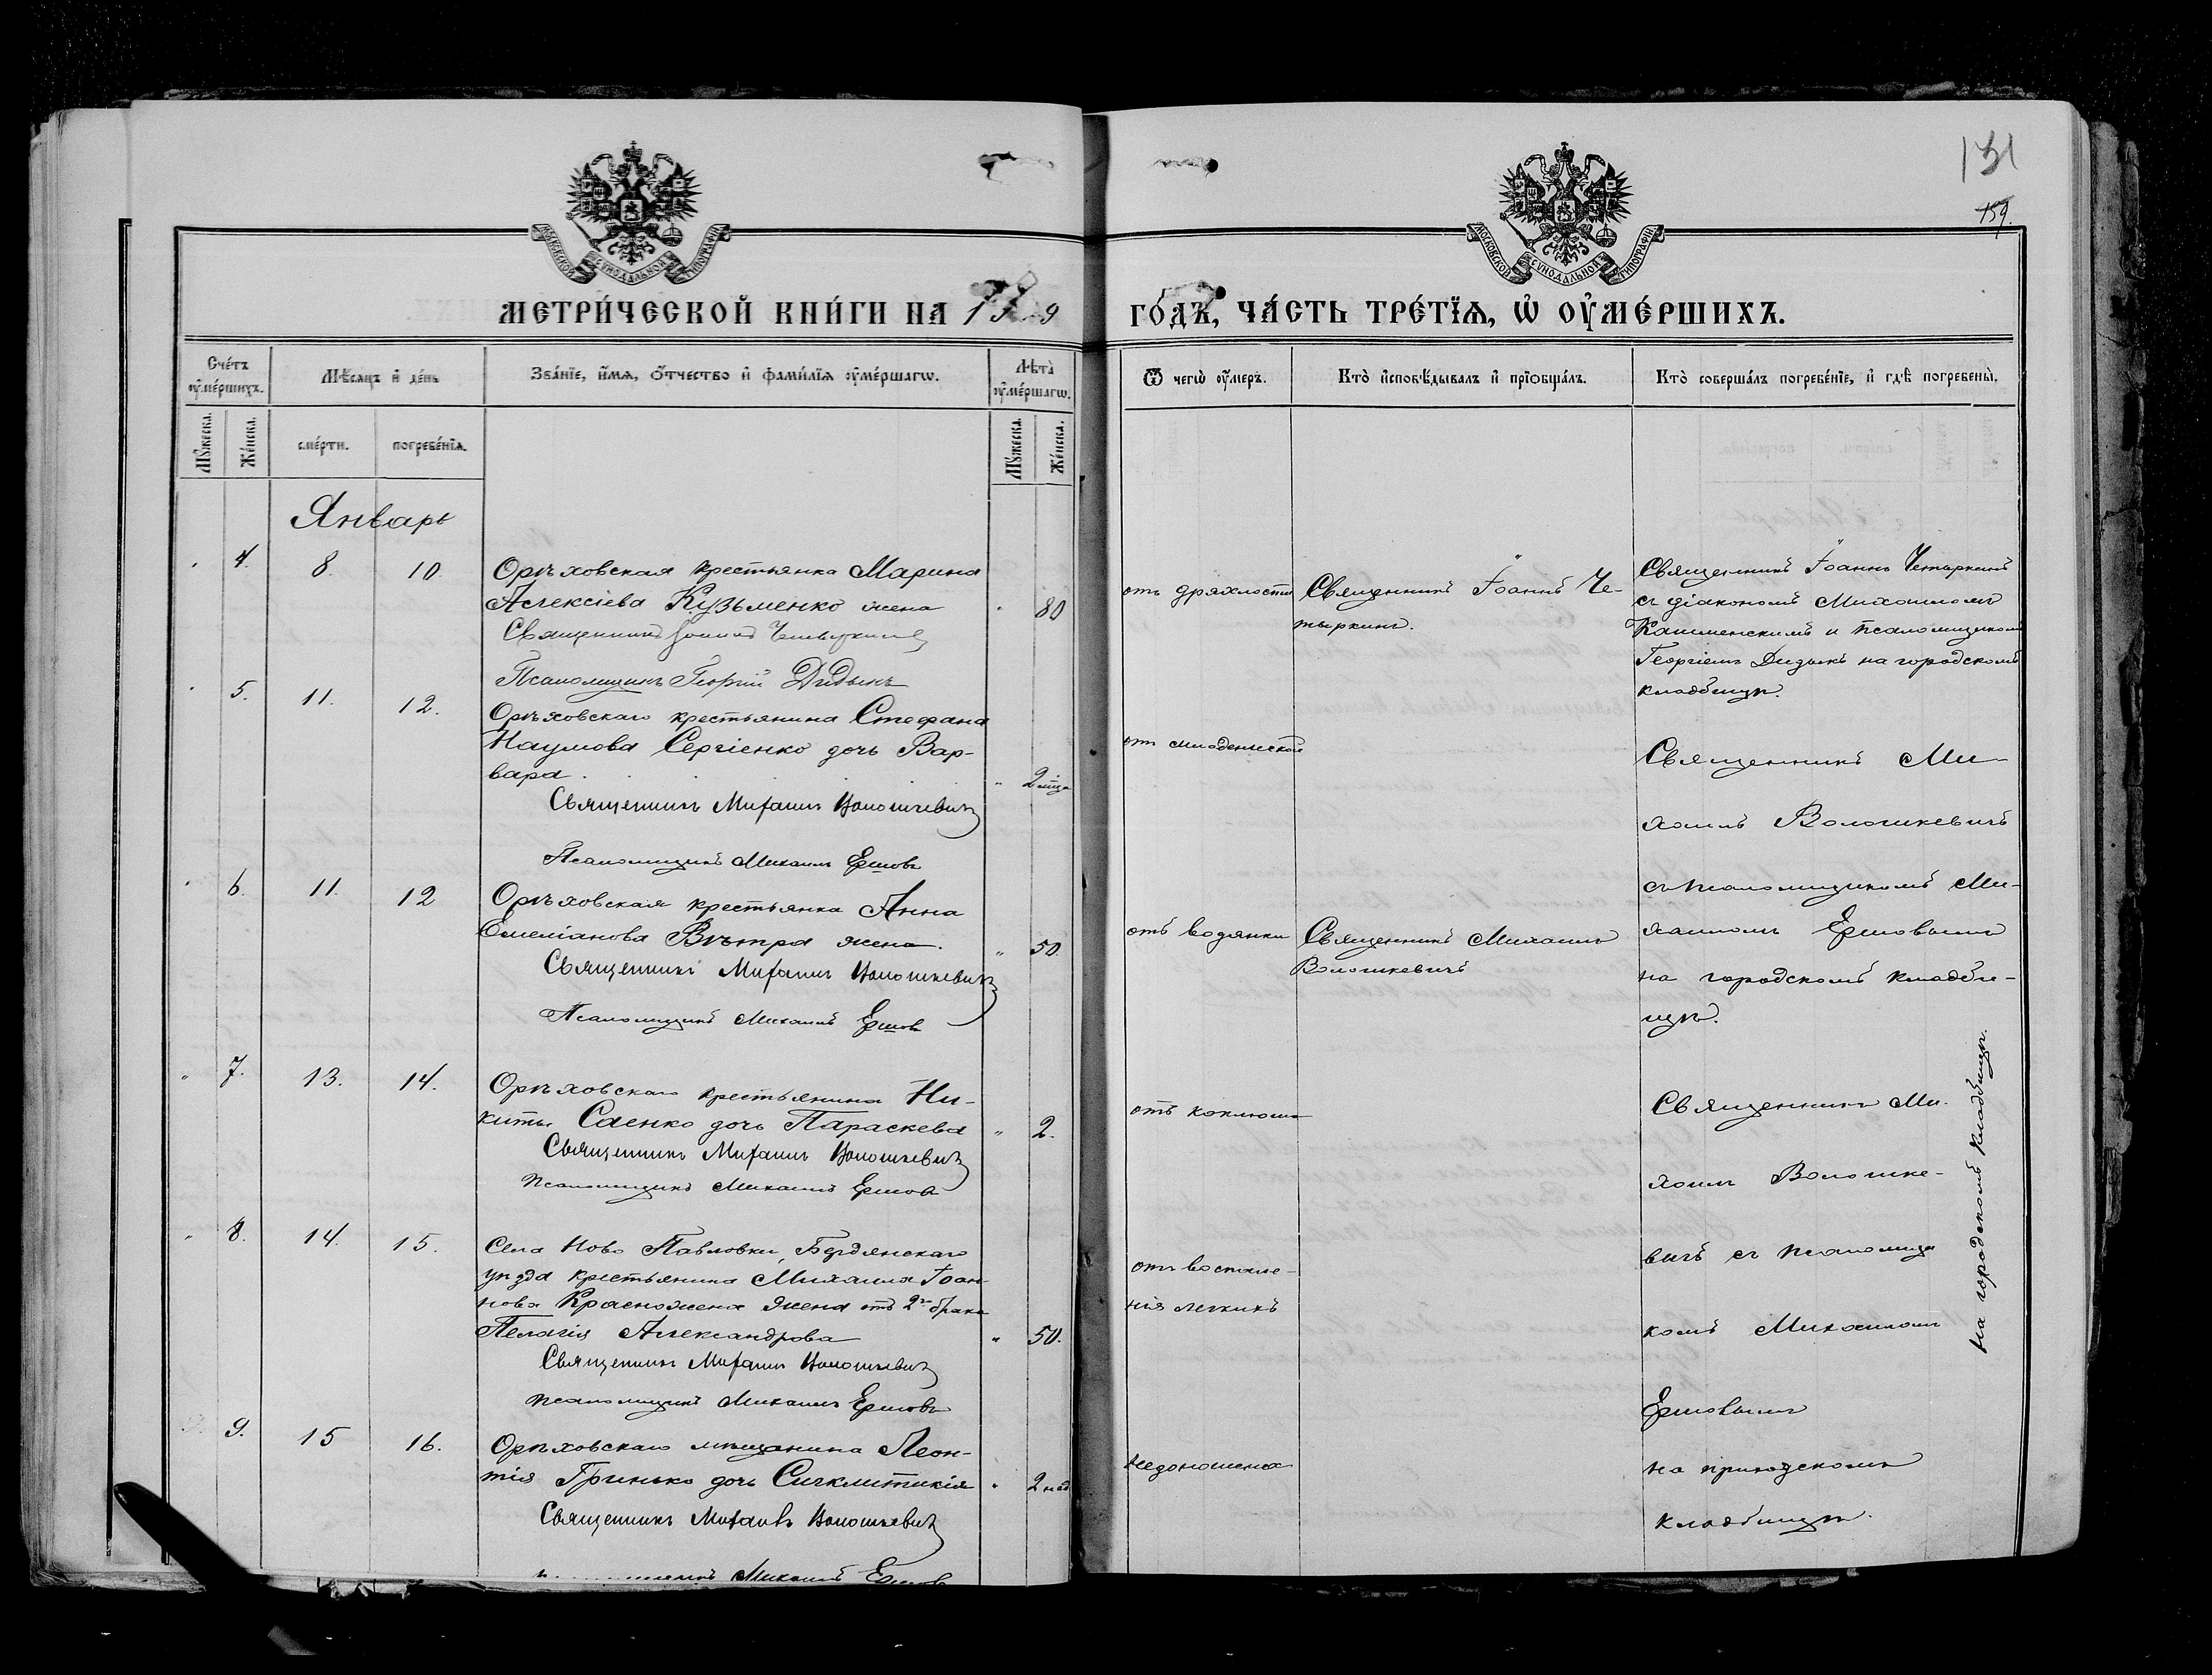 131
159.
МОСКОВСКОЙ СУНОДАЛЬНОЙ ТИПОГРАФІИ
МОСКОВСКОЙ СУНОДАЛЬНОЙ ТИПОГРАФІИ
МЕТРИ́ЧЕСКОЙ КНИ́ГИ НА
ГО́ДЪ, ЧА́СТЬ ТРЕ́ТЇѦ, Ѡ҆ ОУ҆МЕ́РШИХЪ.
Сче́тъ оу҆ме́ршихъ.
Мѣ́сѧцъ и҆ де́нь
Зва́нїе, и҆́мѧ, ѻ҆́тчество и҆ фами́лїѧ оу҆ме́ршагѡ.
Лѣ́та оу҆ме́ршагѡ.
Ѿ чегѡ̀ оу҆́меръ.
Кто̀ и҆сповѣ́дывалъ и҆ прїѡбща́лъ.
Кто̀ соверша́лъ погребе́нїе, и҆ гдѣ̀ погребены̀.
Му́жеска.
Же́нска.
сме́рти.
погребе́нїѧ.
Му́жеска.
Же́нска.
Январь
4. 8. 10. Орѣховская крестьянка Марина
Алексіева Кузьменко жена " 80
Священникъ Іоаннъ Четыркинъ
Псаломщикъ Георгій Дидыкъ
отъ дряхлости
Священникъ Іоаннъ Че-
тыркинъ.
Священникъ Іоаннъ Четыркинъ
съ діакономъ Михаиломъ
и псаломщикомъ
Георгіемъ Дидыкъ на городскомъ
кладбищѣ.
5. 11. 12. Орѣховскаго крестьянина Стефана
Наумова Сергіенко дочь Вар-
вара . . . . . " 2 мца
Священникъ Михаилъ Волошкевичъ
Псаломщикъ Михаилъ Ершовъ
отъ младенческой
Священникъ Ми-
хаилъ Волошкевичъ
съ псаломщикомъ Ми-
хаиломъ Ершовымъ
на городскомъ кладби-
щѣ.
6. 11. 12 Орѣховская крестьянка Анна
Емеліанова Вѣтра жена. " 50.
Священникъ Михаилъ Волошкевичъ
Псаломщикъ Михаилъ Ершовъ
отъ водянки
Священникъ Михаилъ
Волошкевичъ
" 7. 13. 14. Орѣховскаго крестьянина Ни-
киты Саенко дочь Параскева " 2.
Священникъ Михаилъ Волошкевичъ
Псаломщикъ Михаилъ Ершовъ
отъ коклюша
Священникъ Ми-
хаилъ Волошке-
вичъ съ псаломщи
комъ Михаиломъ
Ершовымъ
на городскомъ кладбищѣ.
" 8. 14. 15. Села Ново Павловки, Бердянскаго
уѣзда крестьянина Михаила Іоан-
нова Красножена жена отъ 2го брака
Пелагія Александрова " 50.
Священникъ Михаилъ Волошкевичъ
Псаломщикъ Михаилъ Ершовъ
отъ воспале-
нія легкихъ
9. 15 16. Орѣховскаго мѣщанина Леон-
тія Гринько дочь Сигклитикія " 2 нед
Священникъ Михаилъ Волошкевичъ
Михаилъ Ершовъ
недоношена
на приходскомъ
кладбищѣ.